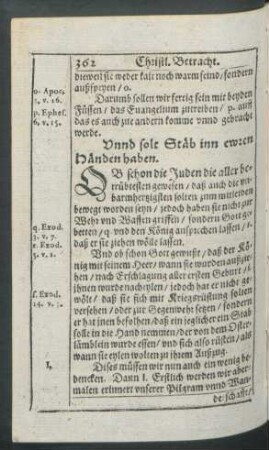 362 Christl. Betracht.
dieweil sie weder kalt noch warm seind / sondern
außspeyen / o.
Darumb sollen wir fertig sein mit beyden
Füssen / das Euangelium zutreiben / p. auff
das es auch zue andern komme vnnd gebracht
werde.
Vnnd solt Stäb inn ewren
Händen haben.
OB schon die Juden die aller be-
trübtesten gewesen / daß auch die vn-
barmhertzigsten solten zum mitleiden
bewegt worden seyn / jedoch haben sie nicht zur
Wehr vnd Waffen griffen / sondern Gott ge-
betten / q. vnd den König ansprechen lassen / r.
daß er sie ziehen wölle lassen.
Vnd ob schon Gott gewüst / daß der Kö-
nig mit seinem Heer / wann sie wurden außzie-
hen / nach Erschlagung aller ersten Geburt / s.
ihnen wurde nacheylen / jedoch hat er nicht ge-
wölt / daß sie sich mit Kriegsrüstung solten
versehen / oder zur Gegenwehr setzen / sondern
er hat jnen befolhen / daß ein jeglicher ein Stab
solte in die Hand nemmen / der von dem Oster-
lämblein wurde essen / vnd sich also rüsten / als
wann sie eylen wolten zu ihrem Außzug.
Dises müssen wir nun auch ein wenig be-
dencken. Dann 1. Erstlich werden wir aber-
malen erinnert vnserer Pilgram vnnd Wan-
de/schafft /
o. Apoc.
3. v. 16.
p. Ephes.
6. v. 15.
q. Exod.
3. v. 7.
r. Exod.
5. v. 1.
s. Exod.
14. v. 5.
1.